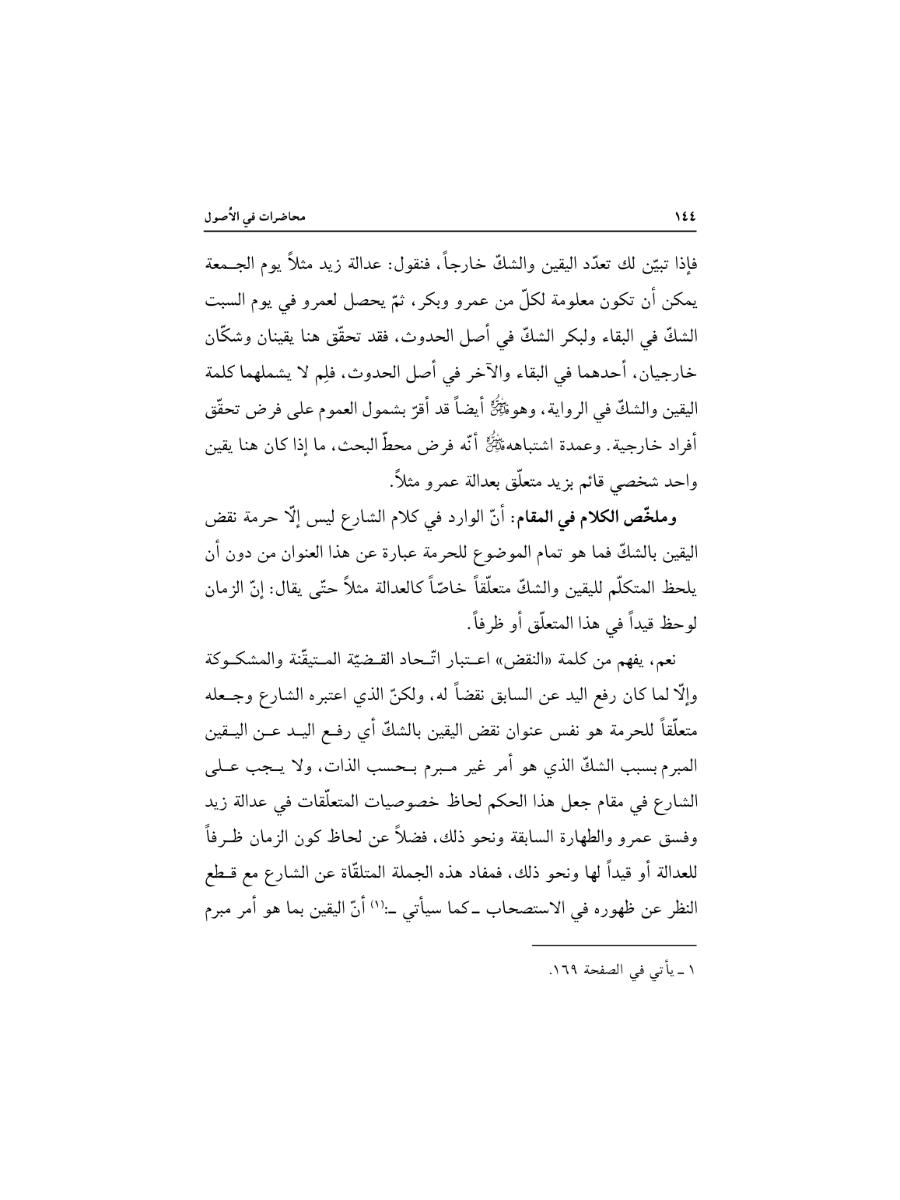 ١٤٤ محاضرات في الأُصول
فإذا تبيّن لك تعدّد اليقين والشكّ خارجاً، فنقول: عدالة زيد مثلاً يوم الجـمعة
يمكن أن تكون معلومة لكلّ من عمرو وبكر، ثمّ يحصل لعمرو في يوم السبت
الشكّ في البقاء ولبكر الشكّ في أصل الحدوث، فقد تحقّق هنا يقينان وشكّان
خارجيان، أحدهما في البقاء والآخر في أصل الحدوث، فلِم لا يشملهما كلمة
اليقين والشكّ في الرواية، وهو أيضاً قد أقرّ بشمول العموم على فرض تحقّق
أفراد خارجية. وعمدة اشتباهه أنّه فرض محطّ البحث، ما إذا كان هنا يقين
واحد شخصي قائم بزيد متعلّق بعدالة عمرو مثلاً.
وملخّص الكلام في المقام: أنّ الوارد في كلام الشارع ليس إلّا حرمة نقض
اليقين بالشكّ فما هو تمام الموضوع للحرمة عبارة عن هذا العنوان من دون أن
يلحظ المتكلّم لليقين والشكّ متعلّقاً خاصّاً كالعدالة مثلاً حتّى يقال: إنّ الزمان
لوحظ قيداً في هذا المتعلّق أو ظرفاً.
نعم، يفهم من كلمة «النقض» اعـتبار اتّـحاد القـضيّة المـتيقّنة والمشكـوكة
وإلّا لما كان رفع اليد عن السابق نقضاً له، ولكنّ الذي اعتبره الشارع وجـعله
متعلّقاً للحرمة هو نفس عنوان نقض اليقين بالشكّ أي رفـع اليـد عـن اليـقين
المبرم بسبب الشكّ الذي هو أمر غير مـبرم بـحسب الذات، ولا يـجب عـلى
الشارع في مقام جعل هذا الحكم لحاظ خصوصيات المتعلّقات في عدالة زيد
وفسق عمرو والطهارة السابقة ونحو ذلك، فضلاً عن لحاظ كون الزمان ظـرفاً
للعدالة أو قيداً لها ونحو ذلك، فمفاد هذه الجملة المتلقّاة عن الشارع مع قـطع
النظر عن ظهوره في الاستصحاب ـ كما سيأتي ـ:(١) أنّ اليقين بما هو أمر مبرم
١ ـ يأتي في الصفحة ١٦٩.